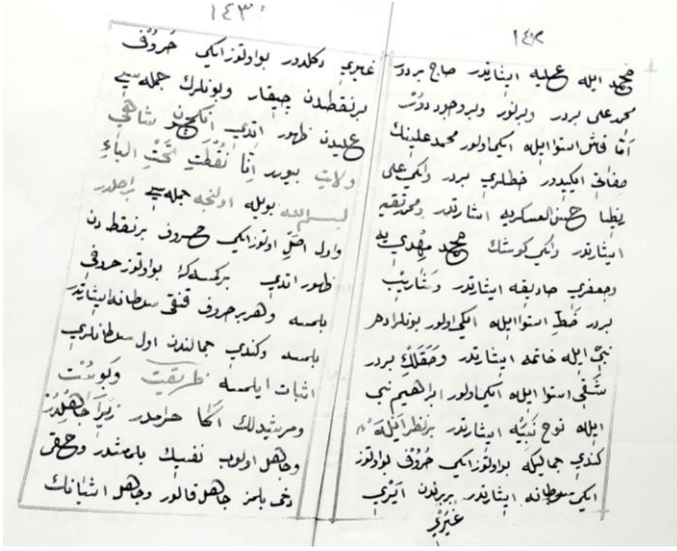 ١٤٢
محمد ايله عليه ايشارتدر صاج بردر
محمد على بردر وبرنور وبروجوددور
قاش استوا ايله ايكى اولور محمد علينك
صفاتى ايكيدور خطلرى بردر وايكى على
حسن العسكريه ايشارتدر ومحمد تقيه
ايشارتدر وايكى كوشك محمد مهدى يه
وجعفرى صاديقه ايشارتدر وشاريب
بردر خط استوا ايله ايكى اولور بونلر
نبى ايله خاتمه ايشارتدر وصقلك بردر
شقى استوا ايله ايكى اولور ابراهيم نبى
ايله نوح نبيه ايشارتدر برنظر ايله
كندى جماليكه بو اوتوز ايكى حروف بو اوتوز
ايكى سلطانه ايشارتدر بربرندن آيرى
غيرى
١٤٣
غيرى دكلدور بو اوتوز ايكى حروف
برنقطدن چيقار وبونلرك جمله سى
عليدن ظهور اتدى انكچون شاهى
ولايت بيورر انا نقطت تحت الباء
بسم الله بويله اولنجه جمله سى بردر
واول اصل اوتوز ايكى حروف برنقطه دن
ظهور اتدى بركمسه كه بو اوتوز حروفى
بلمسه وهر بر حروف قنقى سلطانه ايشارتدر
بلمسه وكندى جمالندن اول سلطانلرى
اثبات ايلمسه طريقت
ومرشيدلك اكا حرامدر زيرا جاهلدر
وجاهل اولوب نفسيك بلمامشدر وحقى
دخى بلمز جاهل قالور وجاهل انسانك